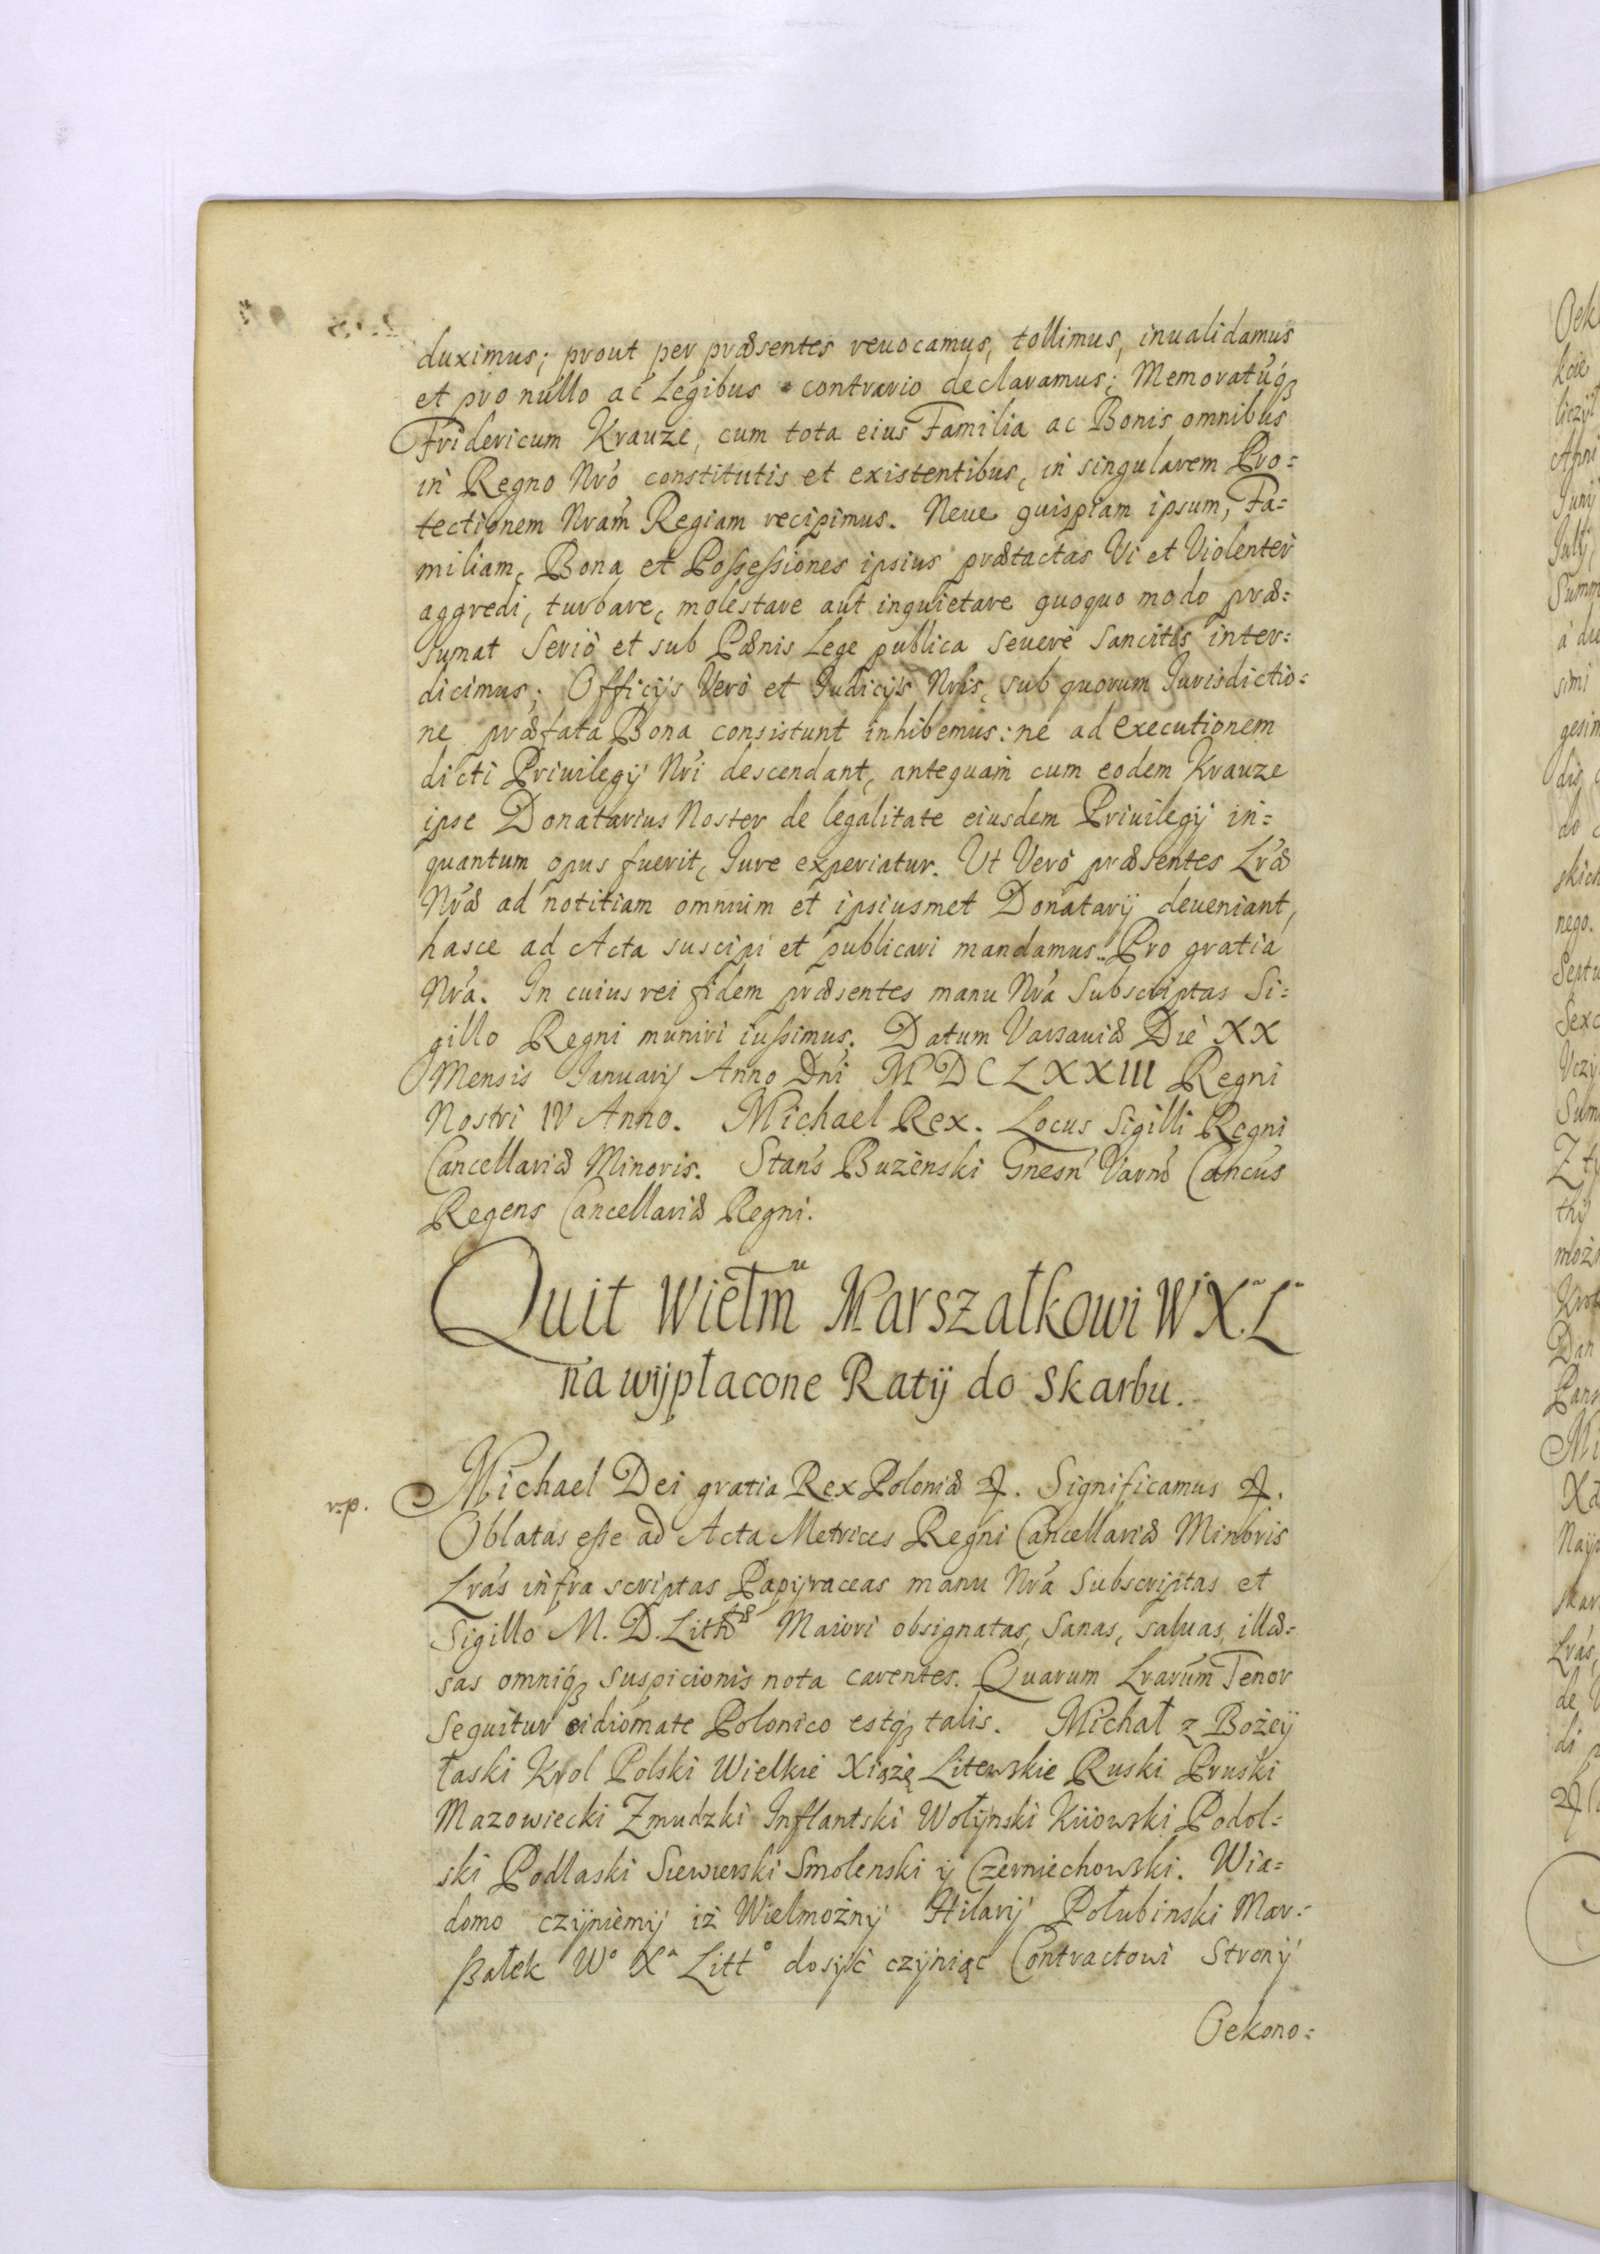 duximus; prout per præsentes reuocamus, tollimus, inualidamus
et pro nullo ac Legibus contrario declaramus; Memoratuq₃
Fridericum Krauze, cum tota eius Familia ac Bonis omnibus
in Regno Nr̃o constitutis et existentibus, in singularem Pro=
tectionem Nram̃ Regiam recipimus. Neue quispiam ipsum, Fa=
miliam, Bona et Possessiones ipsius prætactas Vi et Violenter
aggredi, turbare, molestare aut inquietare quoquo modo præ=
sumat Seriò et sub Pænis Lege publica seuerè Sancitis inter=
dicimus; Officijs Verò et Iudicijs Nris, sub quorum Iurisdictio=
ne præfata Bona consistunt inhibemus: ne ad executionem
dicti Priuilegij Nr̃i descendant, antequam cum eodem Krauze
ipse Donatarius Noster de legalitate eiusdem Priuilegij in=
quantum opus fuerit, Iure experiatur. Ut Verò præsentes Lr̃æ
Nr̃æ ad notitiam omnium et ipsiusmet Donatarij deueniant,
hasce ad Acta suscipi et publicari mandamus. Pro gratia
Nr̃a. In cuius rei fidem præsentes manu Nr̃a Subscriptas Si=
gillo Regni muniri iussimus. Datum Varsauiæ Die XX
Mensis Ianuarij Anno Dni MDCLXXIII Regni
Nostri IV Anno. Michael Rex. Locus Sigilli Regni
Cancellariæ Minoris. Stans Buzenski Gnesn Varm Cancus
Regens Cancellariæ Regni.
Quit Wielmu Marszałkowi W X. L
na wÿpłacone Ratÿ do Skarbu.
r.p.
Michael Dei gratia Rex Poloniæ ꝛc. Significamus ꝛc.
Oblatas esse ad Acta Metrices Regni Cancellariæ Minoris
Lr̃as infra scriptas Papÿraceas manu Nr̃a Subscriptas et
Sigillo M. D. Lithæ Maiori obsignatas, Sanas, saluas, illæ=
sas omniq₃ suspicionis nota carentes. Quarum Lrarum Tenor
Sequitur eidiomate Polonico estq₃ talis. Michał z Bożeÿ
łaski Krol Polski Wielkie Xiążę Litewskie Ruski Pruski
Mazowiecki Zmudzki Inflantski Wołÿnski Kiiowski Podol=
ski Podlaski Siewierski Smolenski ÿ Czerniechowski. Wia=
domo czÿniemÿ iż Wielmożnÿ Hilarÿ Połubinski Mar=
szałek Wo Xa Litto dosÿć czÿniąc Contractowi Stronÿ
Oekono=